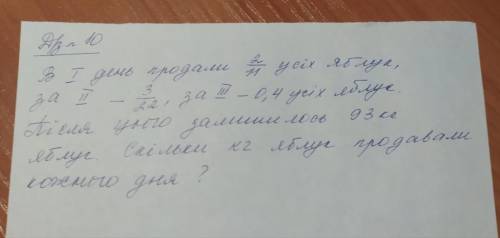 Др n 10
В I день продали 2/11 усіх яблук,
за II – 3/22, за III – 0,4 усіх яблук.
Після цього залишилось 93 кг
яблук. Скільки кг яблук продавали
кожного дня ?